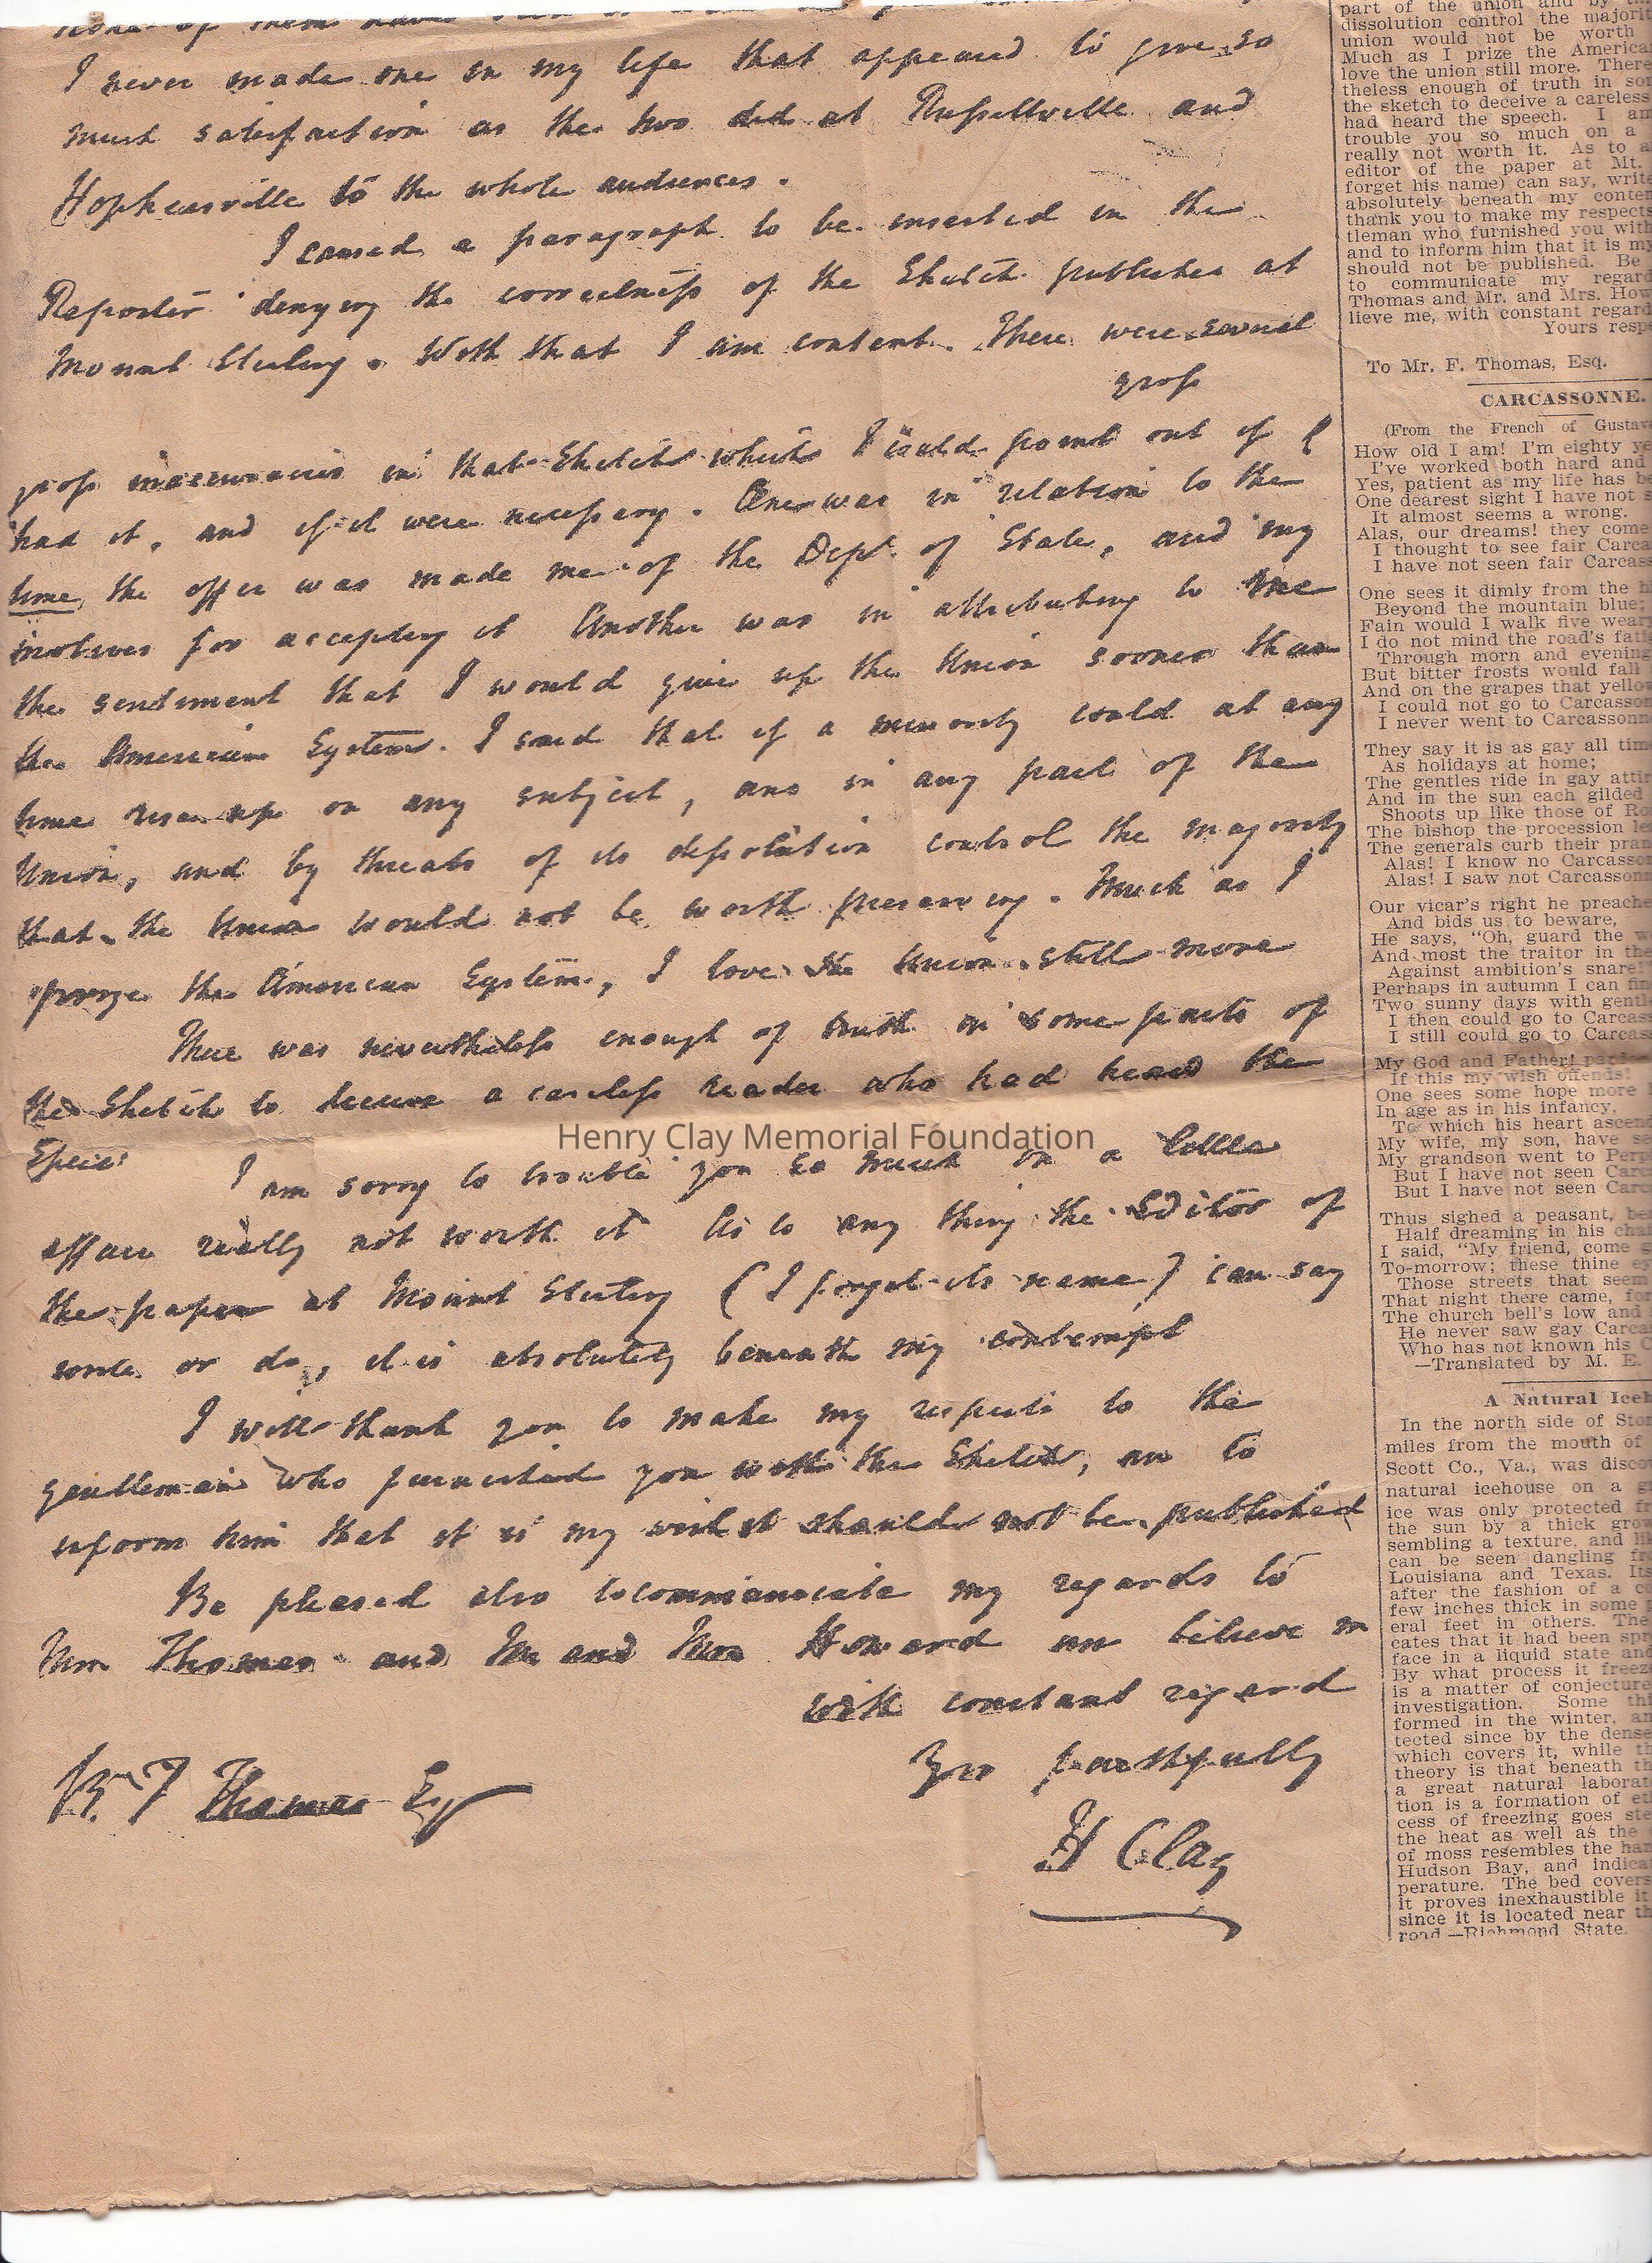 I never made one in my life that appeared to give so
much satisfaction as the two did at Russellville and
Hopkinsville to the whole audiences.
I caused a paragraph to be inserted in the
Reporter denying the correctness of the Sketch publishes at
Mount Sterling. With that I am content. There were several
gross
gross inaccuracies in that Sketch which I could point out if I
had it, and if it were necessary. One was in relation to the
time, the offer was made me of the Dept. of State, and my
motives for accepting it Another was in attributing to me
the sentiment that I would give up the Union sooner than
the American System. I said that if a minority could at any
time rise up on any subject, and in any part of the
Union, and by threats of its dissolution control the majority
that the Union would not be worth preserving. Much as I
prize the American System, I love the Union still more
There was nevertheless enough of truth in some parts of
the Sketch to deceive a careless reader who had heard the
Speech
I am sorry to trouble you so much on a little
affair really not worth it As to any thing the Editor of
the paper at Mount Sterling (I forget its name) can say
write or do, it is absolutely beneath my contempt
I will thank you to make my respects to the
gentleman who furnished you with the Sketch, an to
inform him that it is my wish it should not be published
Be pleased also to communicate my regards to
Mrs Thomas and Mr and Mrs Howard an believe m
with constant regard
Yrs faithfully
H Clay
F Thomas Esq
Henry Clay Memorial Foundation
part of the union and by
dissolution control the majorit
union would not be worth
Much as I prize the America
love the union still more. There
theless enough of truth in so
the sketch to deceive a careless
had heard the speech. I am
trouble you so much on a
really not worth it. As to a
editor of the paper at Mt.
forget his name) can say, write
absolutely beneath my conte
thank you to make my respect
tleman who furnished you with
and to inform him that it is my
should not be published. Be
to communicate my regard
Thomas and Mr. and Mrs. How
lieve me, with constant regard
Yours resp
To Mr. F. Thomas, Esq.
CARCASSONNE.
(From the French of Gustav
How old I am! I'm eighty ye
I've worked both hard and
Yes, patient as my life has b
One dearest sight I have not s
It almost seems a wrong.
Alas, our dreams! they come
I thought to see fair Carca
I have not seen fair Carcas
One sees it dimly from the h
Beyond the mountain blue;
Fain would I walk five wear
I do not mind the road's fati
Through morn and evening
But bitter frosts would fall
And on the grapes that yellow
I could not go to Carcasson
I never went to Carcassonn
They say it is as gay all tim
As holidays at home;
The gentles ride in gay attir
And in the sun each gilded
Shoots up like those of Ro
The bishop the procession le
The generals curb their pran
Alas! I know no Carcasso
Alas! I saw not Carcasson
Our vicar's right he preache
And bids us to beware,
He says, "Oh, guard the w
And most the traitor in the
Against ambition's snare!
Perhaps in autumn I can fin
Two sunny days with gentl
I then could go to Carcas
I still could go to Carcas
My God and Father! pardo
If this my wish offends!
One sees some hope more
In age as in his infancy,
To which his heart ascend
My wife, my son, have s
My grandson went to Perp
But I have not seen Carc
But I have not seen Carc
Thus sighed a peasant, be
Half dreaming in his cha
I said, "My friend, come
To-morrow; these thine ey
Those streets that seem
That night there came, for
The church bell's low and
He never saw gay Carca
Who has not known his C
—Translated by M. E.
A Natural Iceh
In the north side of Sto
miles from the mouth of
Scott Co., Va., was disco
natural icehouse on a g
ice was only protected fr
the sun by a thick grow
sembling a texture, and li
can be seen dangling fr
Louisiana and Texas. Its
after the fashion of a c
few inches thick in some p
eral feet in others. The
cates that it had been spr
face in a liquid state and
By what process it freez
is a matter of conjecture
investigation. Some th
formed in the winter, an
tected since by the dense
which covers it, while th
theory is that beneath th
a great natural laborat
tion is a formation of et
cess of freezing goes ste
the heat as well as the
of moss resembles the ha
Hudson Bay, and indica
perature. The bed covers
it proves inexhaustible it
since it is located near th
road.—Richmond State.